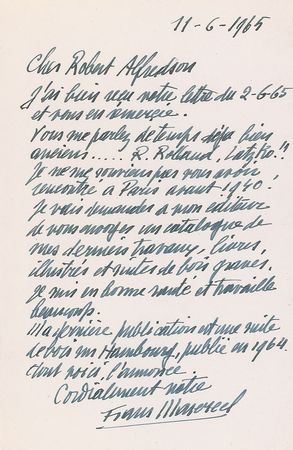 11-6-1965
Cher Robert Alfredson
J'ai bien reçu votre lettre du 2-6-65
et vous en remercie.
Vous me parlez de temps déjà bien
anciens..... R. Rolland, Latzko!!
Je ne me souviens pas vous avoir
rencontré à Paris avant 1940!
Je vais demander à mon éditeur
de vous envoyer un catalogue de
mes derniers travaux, livres,
illustrés et suites de bois gravés.
Je suis en bonne santé et travaille
beaucoup.
Ma dernière publication est une suite
de bois sur Hambourg, publiée en 1964
dont voici l'annonce.
Cordialement votre
Frans Masereel